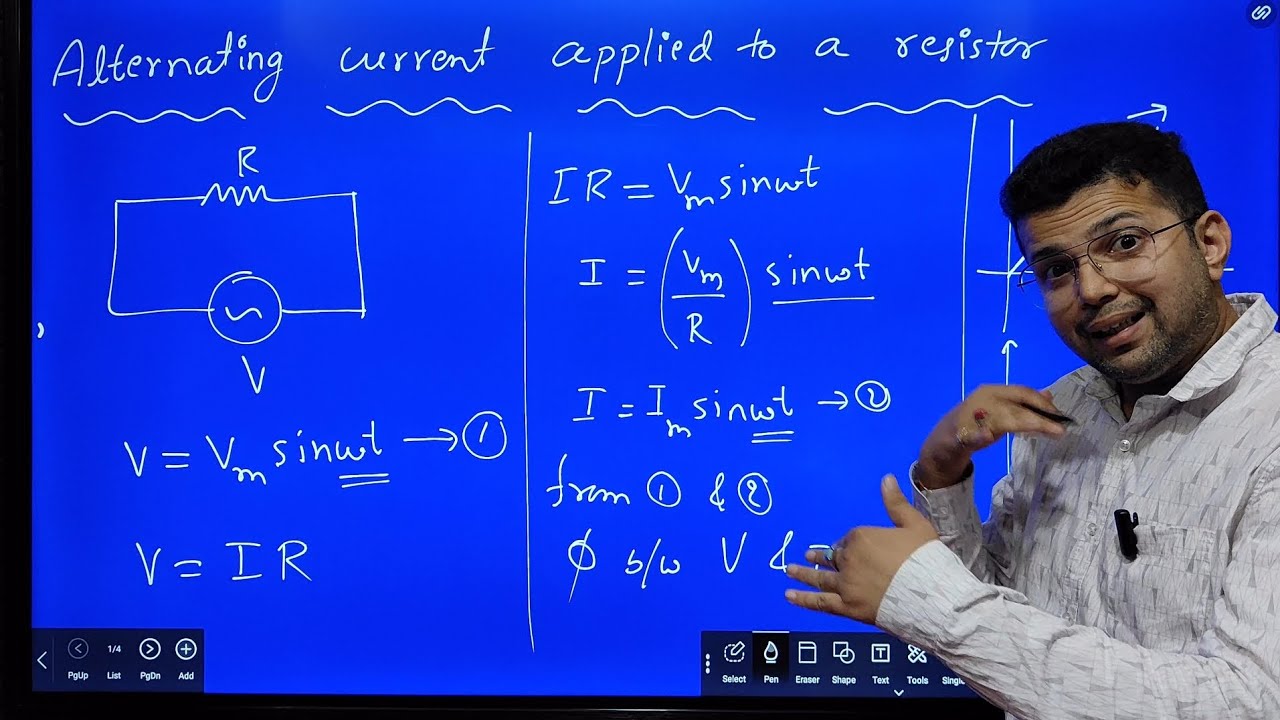 Alternating current applied to a resistor
R
V
V = Vm sinωt → ①
V = IR
IR = Vm sinωt
I = (Vm/R) sinωt
I = Im sinωt → ②
from ① & ②
ϕ b/w V &
1/4
PgUp List PgDn Add
Select Pen Eraser Shape Text Tools